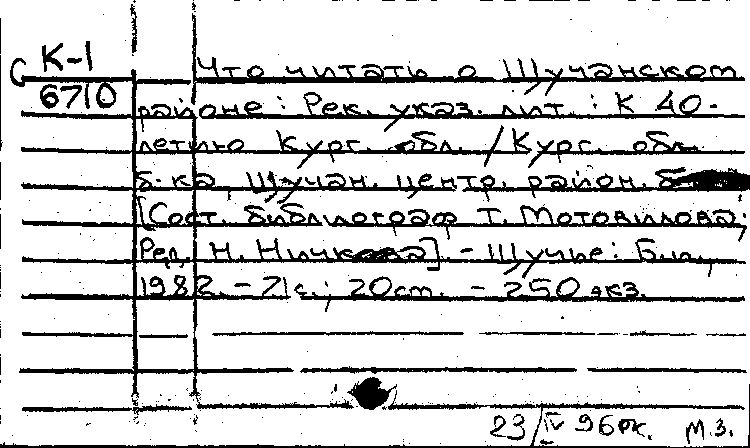 К-1
6710
Что читать о Щучанском
районе : Рек. указ. лит. : К 40-
летию Кург. обл. / Кург. обл.
б-ка, Щучан. центр. район. б
[Сост. библиограф Т. Мотовилова;
Ред. Н. Ничкова]. - Щучье : Б.и.,
1982. - 21с.; 20см. - 250 экз.
23/IV 96 рк. М.З.